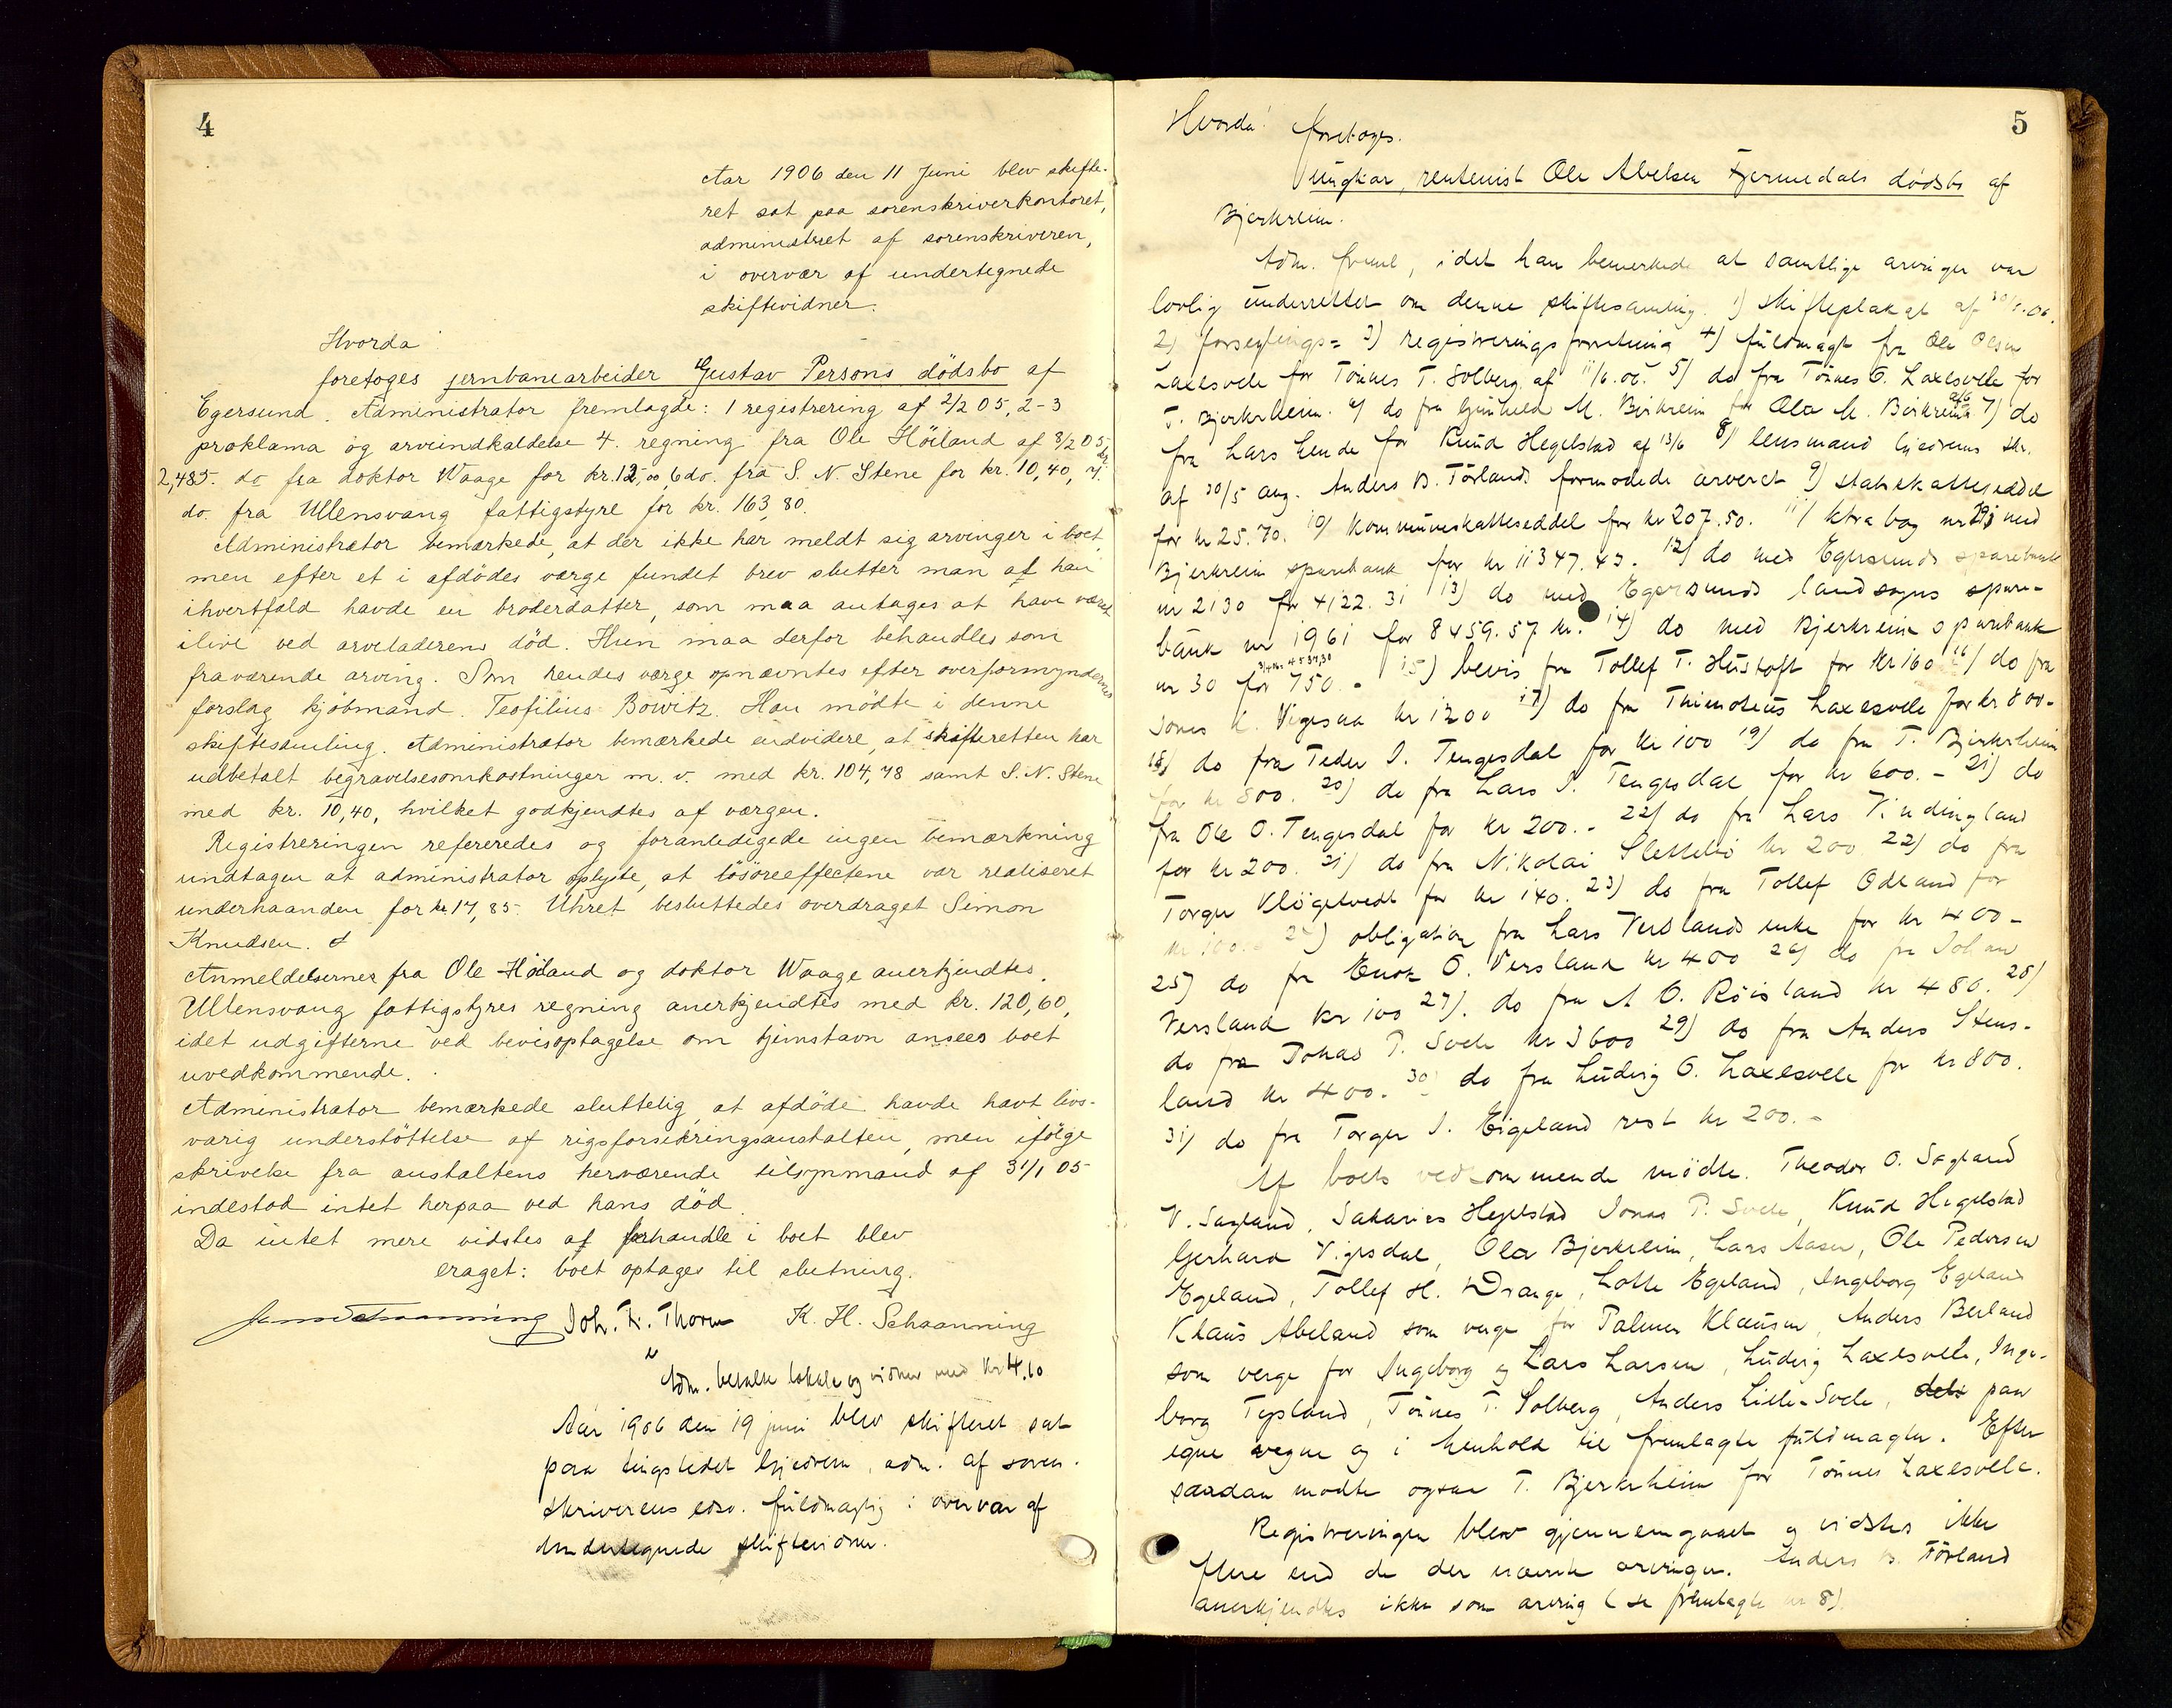 4
Aar 1906 den 11 Juni blev skifte-
ret sat paa sorenskriverkontoret,
administreret af sorenskriveren,
i overvær af undertegnede
skiftevidner.
Hvorda
foretoges jernbanearbeider Gustav Persons dödsbo af
Egersund. Administrator fremlagde: 1 registrering af 2/2 05, 2-3
proklama og arveindkaldelse 4. regning fra Ole Höiland af 8/2 05, kr.
2,485. do fra doktor Waage for kr. 12,00 6 do. fra S. N. Stene for kr. 10,40, 7.
do. fra Ullensvang fattigstyre for kr. 163,80.
Administrator bemærkede, at der ikke har meldt sig arvinger i boet,
men efter et i afdödes værge fundet brev slutter man af han
ihvertfald havde en broderdatter, som maa antages at have været
ilive ved arveladerens död. Hun maa derfor behandles som
fraværende arving. Som hendes værge opnævntes efter overformyndernes
forslag kjöbmand Teofilius Bowitz. Han mödte i denne
skiftesamling. Administrator bemærkede endvidere, at skifteretten har
udbetalt begravelsesomkostninger m. v. med kr. 104,78 samt S. N. Stene
med kr. 10,40, hvilket godkjendtes af værgen.
Registreringen refereredes og foranledigede ingen bemærkning
undtagen at administrator oplyste, at lösöreeffectene var realiseret
underhaanden for kr. 17,85. Uhret besluttedes overdraget Simon
Knudsen.
Anmeldelserne fra Ole Höiland og doktor Waage anerkjendtes.
Ullensvang fattigstyres regning anerkjendtes med kr. 120,60,
idet udgifterne ved bevisoptagelse om hjemstavn ansees boet
uvedkommende.
Administrator bemærkede sluttelig, at afdöde havde havt livs-
varig understöttelse af rigsforsikringsanstalten, men ifölge
skrivelse fra anstaltens herværende tilsynmand af 31/1 05
indestod intet herpaa ved hans död.
Da intet mere vidstes af forhandle i boet blev
eraget: boet optages til slutning.
Joh. F. Thorn K. H. Schaanning
Adm. betalte lokale og vidner med kr 4.10
Aar 1906 den 19 juni blev skifteret sat
paa tingstedet Gjedrem, adm. af soren-
skriverens edsv. fuldmægtig i overvær af
undertegnede skiftevidner.
5
Hvorda! foretoges.
Ungkar, rentenist Ole Abelsen Fjermedals dödsbo af
Bjerkreim.
Adm. freml, idet han bemerkede at samtlige arvinger var
lovlig underrettet om denne skiftesamling. 1) skifteplakat af 30/5.06.
2) forseglings= 3) registreringsforretning 4) fuldmagt fra Ole Olsen
Laxesvele for Tönnes T. Solberg af 11/6.06. 5) do fra Tönnes O. Laxesvele for
T. Bjerkrheim. 6) do fra Gunhild M. Birkreim for Ola M. Birkreim 7) do
fra Lars Eende for Knud Hegelstad af 13/6 8) lensmand Gjedrems skr.
af 30/5 ang. Anders B. Törlands formodede arveret 9) statsskatteseddel
for kr 25.70. 10) Kommuneskatteseddel for kr 207.50. 11) ktra bog nr 293 med
Bjerkreim sparebank for kr 11347.43. 12) do med Egersunds sparebank
nr 2130 for 4122.31 13) do med Egersunds landsogns spare-
bank nr 1961 for 8459.57 kr. 14) do med Bjerkreim sparebank
nr 30 for 750.- 15) bevis fra Tollef T. Hustoft for kr 160 16) do fra
Jones K. Vigesaa kr 1200 17) do fra Thimoteus Laxesvele for kr 800-
18) do fra Peder I. Tengesdal for kr 100 19) do fra T. Bjerkrheim
for kr 800. 20) do fra Lars I. Tengesdal for kr 600.- 21) do
fra Ole O. Tengesdal for kr 200.- 22) do fra Lars Vindingland
for kr 200. 21) do fra Nikolai Slettebö kr 200 22) do fra
Torger Klögetvedt for kr 140. 23) do fra Tollef Odland for
kr 100. 24) obligation fra Lars Verslands enke for kr 400-
25) do fra Enok O. Versland kr 400 26) do fra Johan
Versland kr 100 27). do fra A O. Röisland kr 480. 28)
do fra Jonas P. Svele kr 3600 29) do fra Anders Stens-
land kr 400. 30) do fra Ludvig O. Laxesvele for kr 800.
31) do fra Torger I. Eigeland rest kr 200.-
Af boets vedkommende mödte. Theodor O. Sagland
V. Sagland, Sakarias Hegelstad Jonas P. Svele, Knud Hegelstad
Gerhard Vigesdal, Ola Bjerkreim, Lars Aasen, Ole Pedersen
Egeland, Tollef H. Drange, Lotte Egeland, Ingeborg Egeland
Klaus Abeland som verge for Palmer Klausen, Anders Berland
som verge for Ingeborg og Lars Larsen, Ludvig Laxesvele, Inge-
borg Tysland, Tönnes T. Solberg, Anders Lille-Svele, dels paa
egne vegne og i henhold til fremlagte fuldmagter. Efter
saadan mødte ogsaa T. Bjerkrheim for Tönnes Laxesvele.
Registreringen blev gjennemgaaet og vidstes ikke
flere end de der nævnte arvinger. Anders B. Törland
anerkjendtes ikke som arving (se fremlagte nr 8)